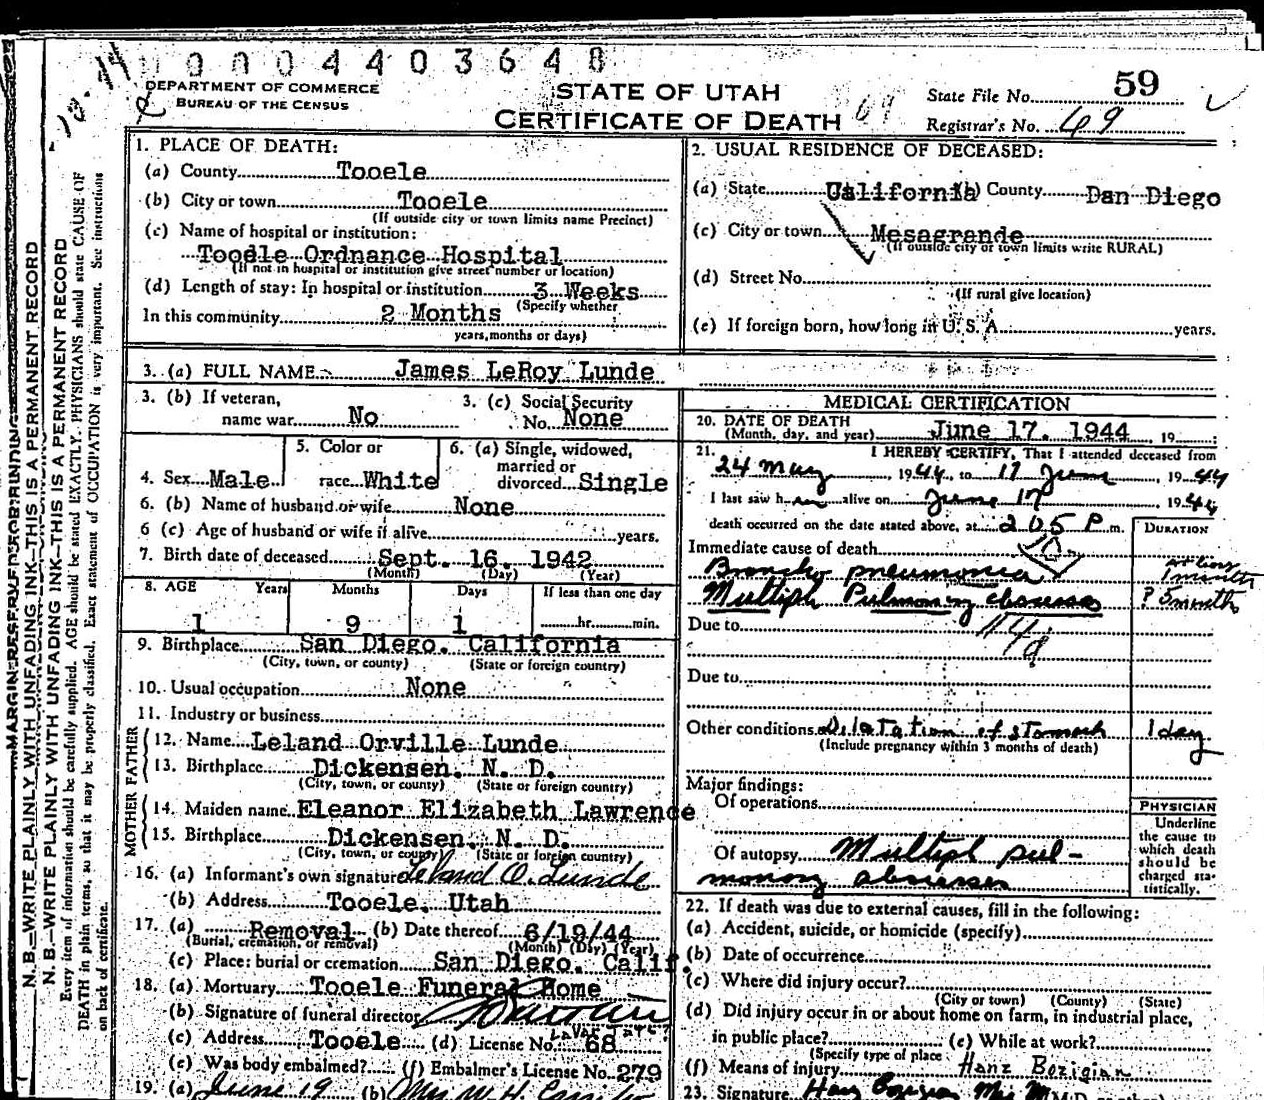 0 0 0 4 4 0 3 6 4 8
DEPARTMENT OF COMMERCE
BUREAU OF THE CENSUS
STATE OF UTAH
CERTIFICATE OF DEATH
State File No. 59
Registrar's No. 69
69
MARGIN RESERVED FOR BINDING
N. B.—WRITE PLAINLY WITH UNFADING INK—THIS IS A PERMANENT RECORD
N. B.—WRITE PLAINLY WITH UNFADING INK—THIS IS A PERMANENT RECORD
Every item of information should be carefully supplied. AGE should be stated EXACTLY. PHYSICIANS should state CAUSE OF
DEATH in plain terms, so that it may be properly classified. Exact statement of OCCUPATION is very important. See instructions
on back of certificate.
1. PLACE OF DEATH:
(a) County Tooele
(b) City or town Tooele
(If outside city or town limits name Precinct)
(c) Name of hospital or institution:
Tooele Ordnance Hospital
(If not in hospital or institution give street number or location)
(d) Length of stay: In hospital or institution 3 Weeks
(Specify whether
In this community 2 Months
years, months or days)
2. USUAL RESIDENCE OF DECEASED:
(a) State California (b) County Dan Diego
(c) City or town Mesagrande
(If outside city or town limits write RURAL)
(d) Street No.
(If rural give location)
(e) If foreign born, how long in U. S. A. years.
3. (a) FULL NAME James LeRoy Lunde
3. (b) If veteran,
name war No
3. (c) Social Security
No. None
4. Sex Male
5. Color or
race White
6. (a) Single, widowed,
married or
divorced Single
6. (b) Name of husband or wife None
6 (c) Age of husband or wife if alive years.
7. Birth date of deceased Sept. 16. 1942
(Month) (Day) (Year)
8. AGE Years Months Days If less than one day
1 9 1 hr. min.
9. Birthplace San Diego. California
(City, town, or county) (State or foreign country)
10. Usual occupation None
11. Industry or business
FATHER
12. Name Leland Orville Lunde
13. Birthplace Dickensen. N. D.
(City, town, or county) (State or foreign country)
MOTHER
14. Maiden name Eleanor Elizabeth Lawrence
15. Birthplace Dickensen. N. D.
(City, town, or county) (State or foreign country)
16. (a) Informant's own signature Leland O. Lunde
(b) Address Tooele. Utah
17. (a) Removal (b) Date thereof 6/19/44
(Burial, cremation, or removal) (Month) (Day) (Year)
(c) Place: burial or cremation San Diego. Calif.
18. (a) Mortuary Tooele Funeral Home
(b) Signature of funeral director
(c) Address Tooele (d) License No. 68
(e) Was body embalmed? (f) Embalmer's License No. 279
19. (a) June 19 (b) Mrs W. H.
MEDICAL CERTIFICATION
20. DATE OF DEATH
(Month, day, and year) June 17. 1944, 19
21. I HEREBY CERTIFY, That I attended deceased from
24 May, 1944, to 17 June, 1944
I last saw him alive on June 17 1944
death occurred on the date stated above, at 2 05 P. m.
DURATION
Immediate cause of death
Broncho pneumonia at least 1 month
Multiple Pulmonary abscesses ? 5 months
Due to
Due to
Other conditions Dilatation of stomach 1 day
(Include pregnancy within 3 months of death)
Major findings:
Of operations
Of autopsy Multiple pul-
monary abscesses
PHYSICIAN
Underline
the cause to
which death
should be
charged sta-
tistically.
22. If death was due to external causes, fill in the following:
(a) Accident, suicide, or homicide (specify)
(b) Date of occurrence
(c) Where did injury occur?
(City or town) (County) (State)
(d) Did injury occur in or about home on farm, in industrial place,
in public place? (e) While at work?
(Specify type of place
(f) Means of injury Hanz Bezigian
23. Signature